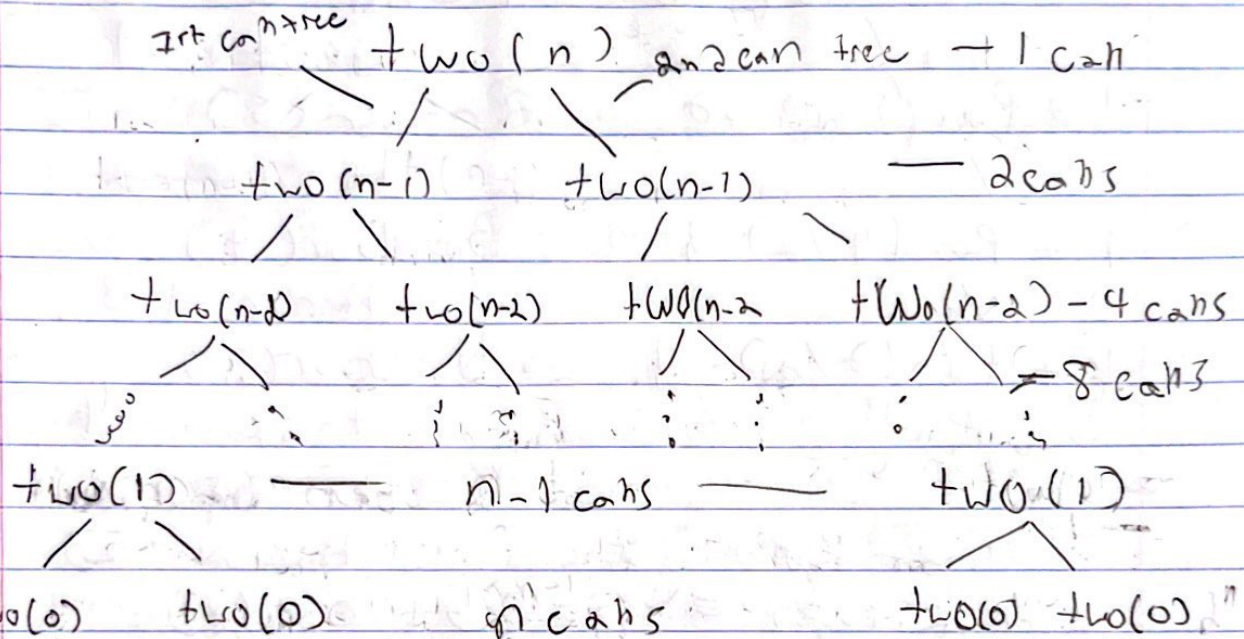 1st call tree two(n) 2nd call tree - 1 call
two(n-1) two(n-1) — 2 calls
two(n-2) two(n-2) two(n-2 two(n-2) - 4 calls
= 8 calls
two(1) — n-1 calls — two(1)
o(0) two(0) calls two(0) two(0)